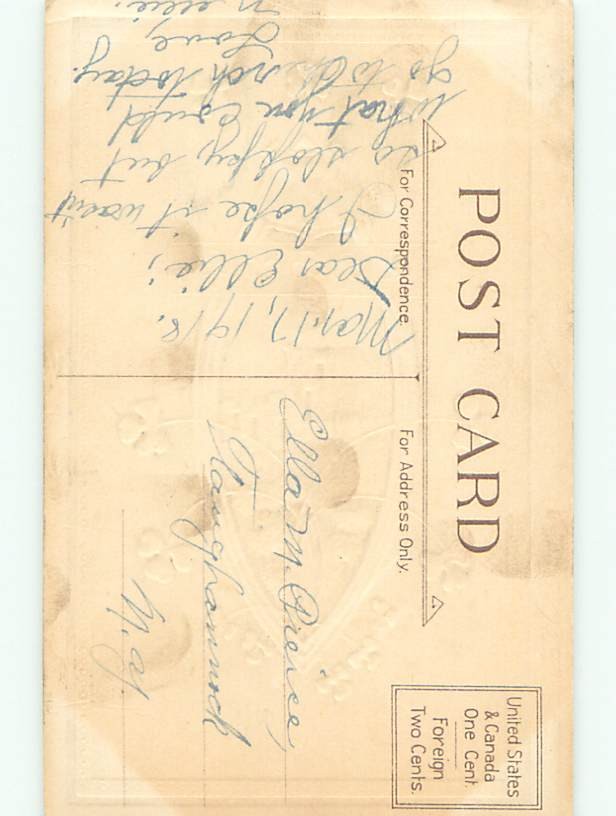 POST CARD
For Correspondence.
For Address Only.
United States
& Canada
One Cent.
Foreign
Two Cents.
Mar. 17, 1918.
Dear Ellie;
I hope it wasn't
so sloppy but
what you could
go to church today.
Love,
Nellie.
Ella M. Preice,
Taughannock
N. Y.